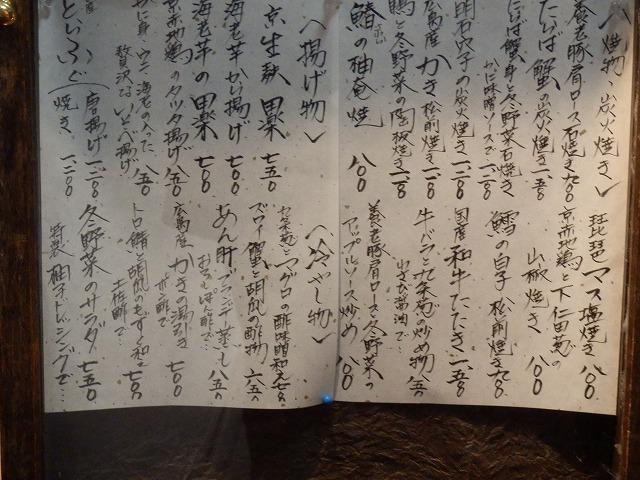 〈焼物 炭火焼き〉
養老豚肩ロース石焼き 九〇〇
たらば蟹 炭火焼き 一、二五〇
たらば蟹身と冬野菜石焼き
かに味噌ソースで 一、二〇〇
明石穴子の炭火焼き 一、二〇〇
広島産 かき 松前焼き 一、二〇〇
鴨と冬野菜の陶板焼き 一、二〇〇
鰆の柚庵焼 八〇〇
琵琶マス塩焼き 八〇〇
京赤地鶏と下仁田葱の
山椒焼き 八〇〇
鱈の白子 松前焼き 九〇〇
国産 和牛たたき 一、二五〇
牛バラと九条葱の炒め物 八五〇
わさび醤油で
養老豚肩ロースと冬野菜の
アップルソース炒め 八〇〇
〈揚げ物〉
京生麩 田楽 七五〇
海老芋の田楽 七〇〇
海老芋から揚げ 七〇〇
京赤地鶏のタツタ揚げ 八五〇
かに身、ウニ、海老の入った
贅沢ないとべ揚げ
唐揚げ 一、二〇〇
焼き 一、二〇〇
〈冷やし物〉
九条葱とマグロの酢味噌和え 七八〇
ズワイ蟹と胡瓜の酢物 六五〇
あん肝ブランデー蒸し 八五〇
おろしぽん酢で
広島産 かきの湯引き 七〇〇
ポン酢で
トロ鯖と胡瓜のもずく和え 七五〇
土佐酢で
冬野菜のサラダ 七五〇
特製 柚子ドレッシングで